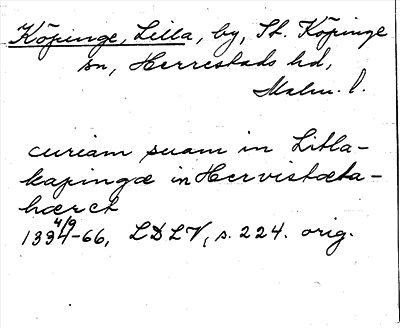 Köpinge, Lilla, by, St. Köpinge
sn, Herrestads hd,
Malm. l.
curiam suam in Litla-
kapingæ in Hervistæta-
hæret
4/9
1334-66, LDLV, s. 224. orig.